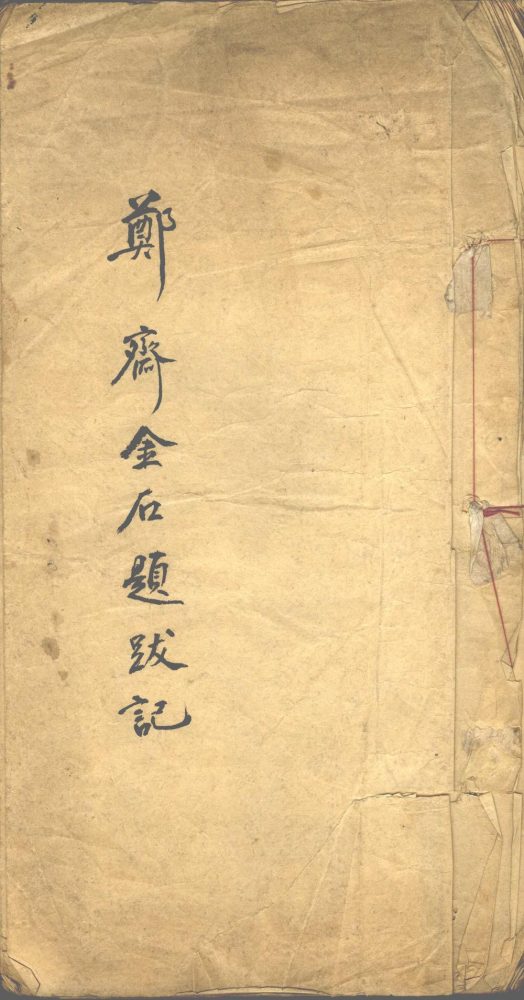 鄭齋金石題跋記